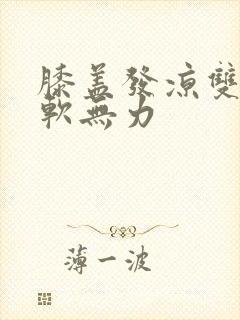 膝盖發凉雙
軟無力
薄一波